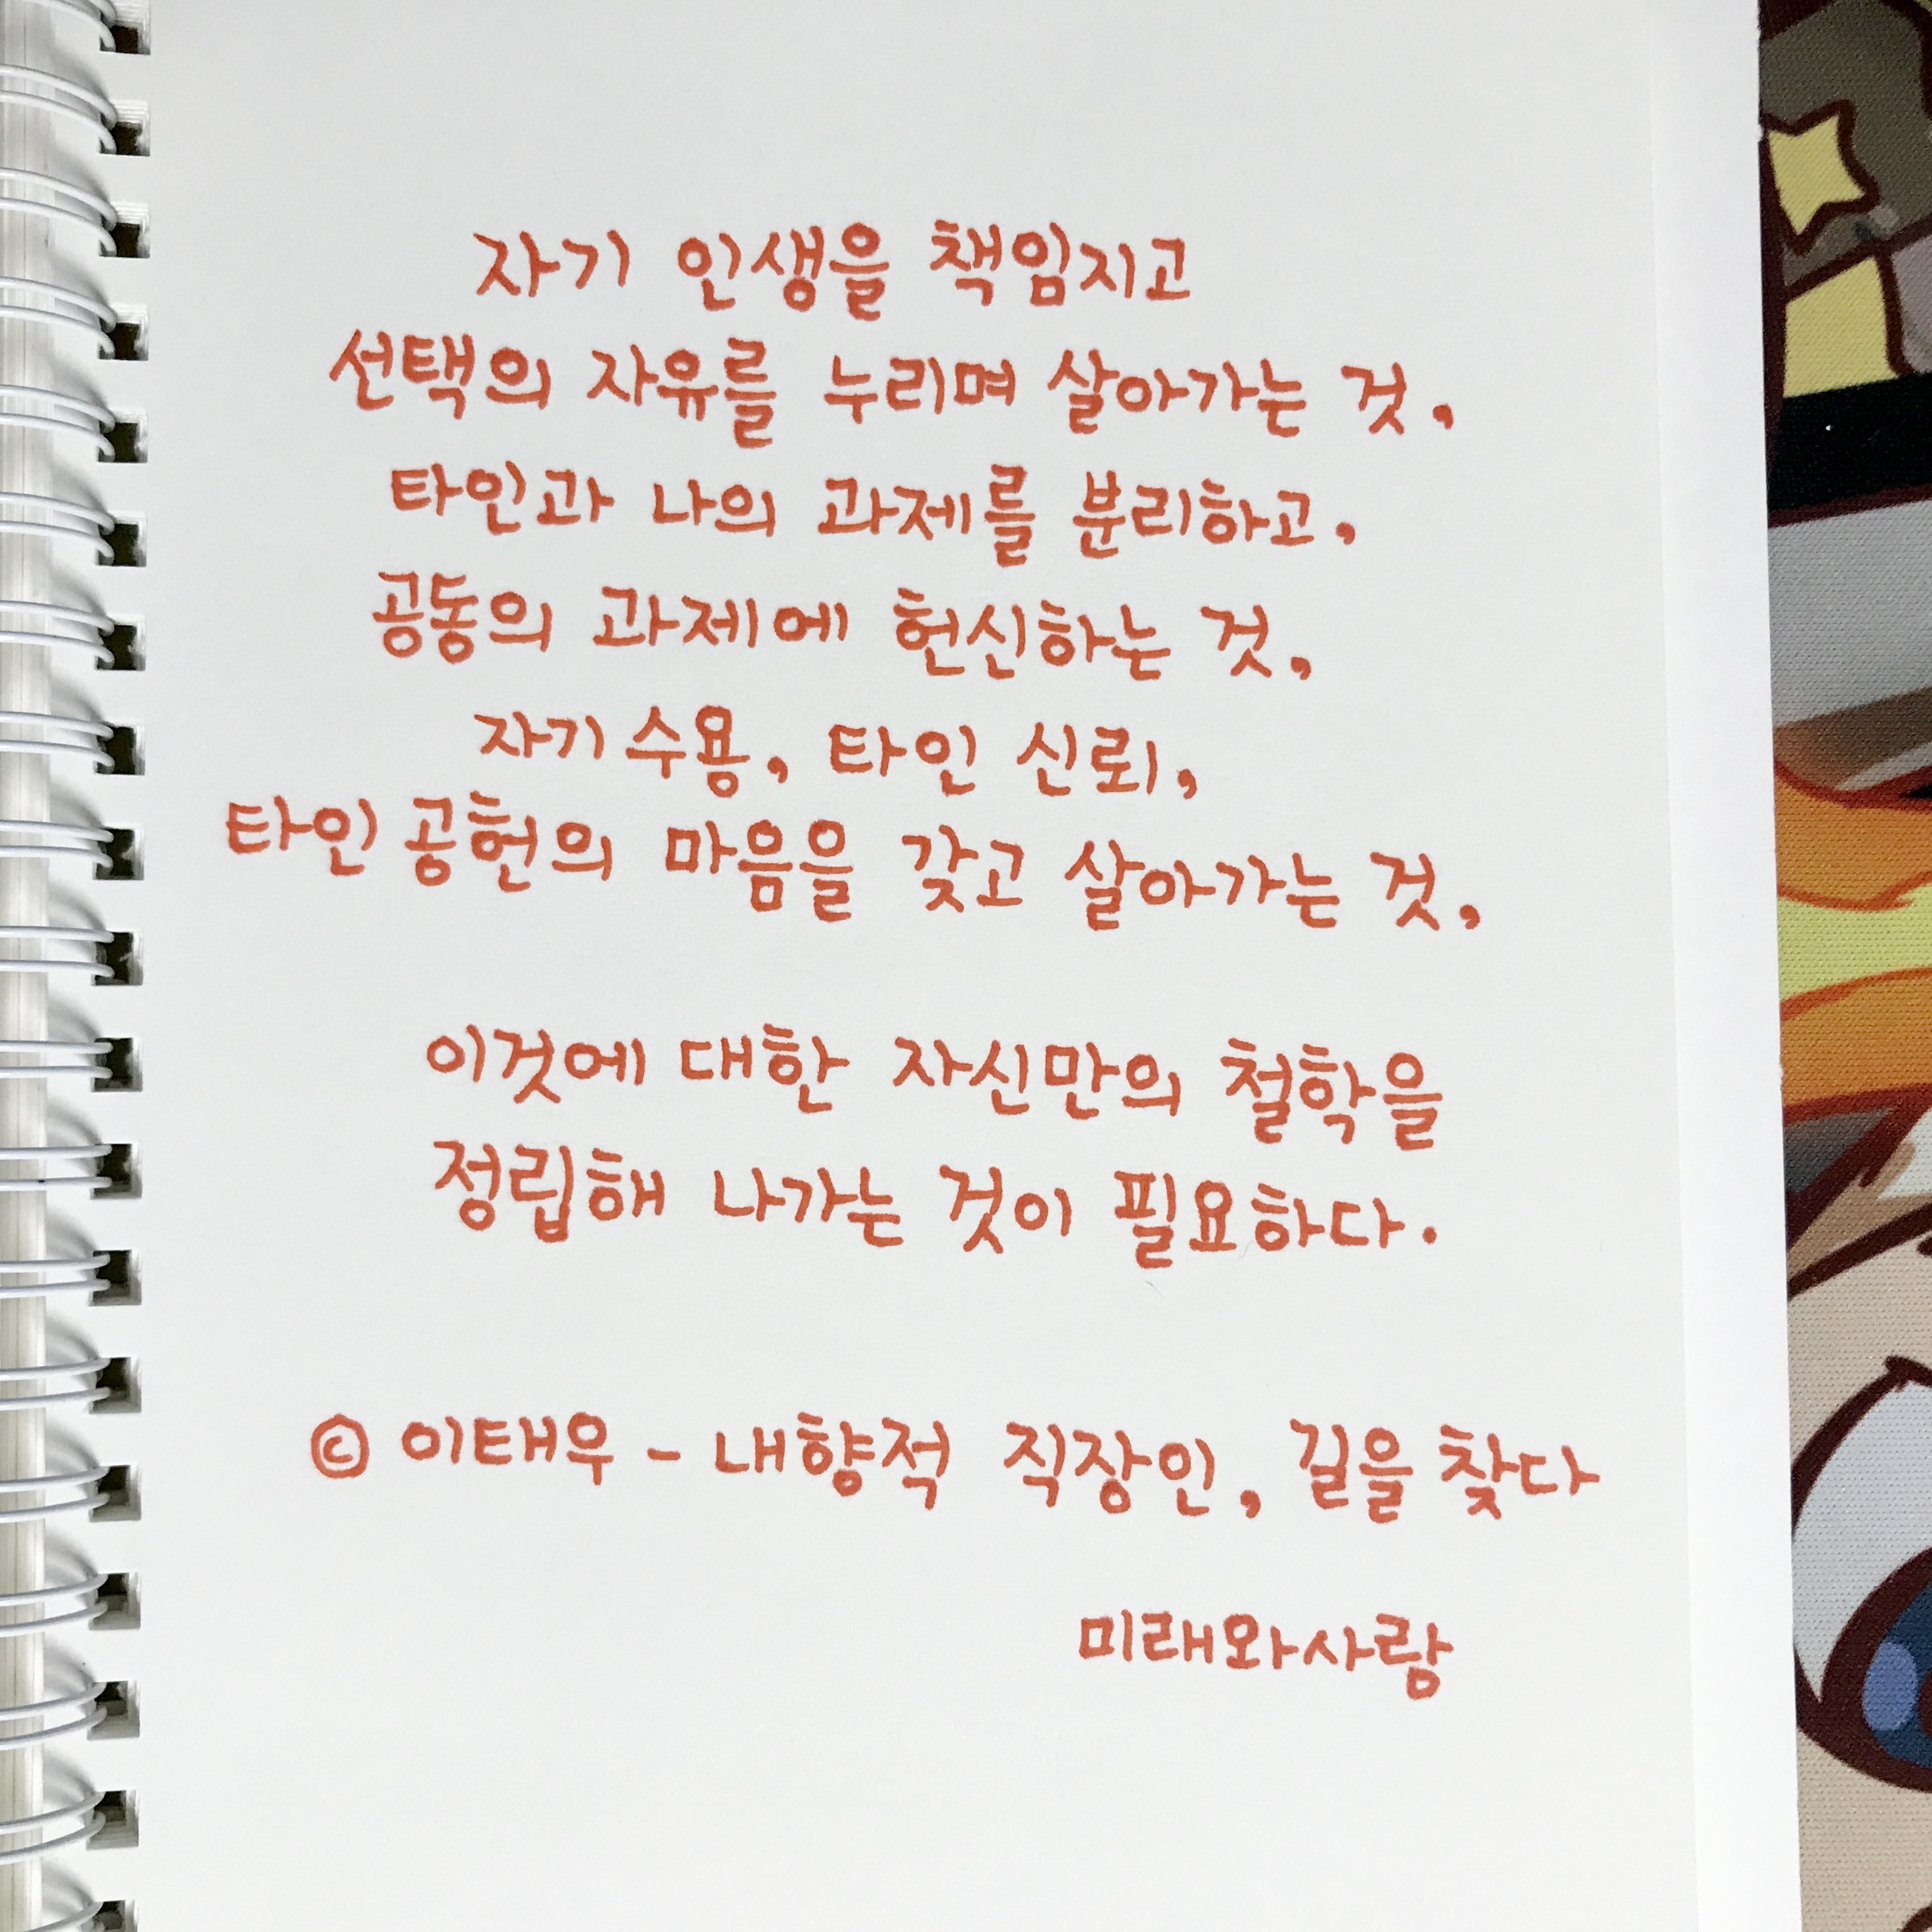 자기 인생을 책임지고
선택의 자유를 누리며 살아가는 것,
타인과 나의 과제를 분리하고,
공동의 과제에 헌신하는 것,
자기 수용, 타인 신뢰,
타인 공헌의 마음을 갖고 살아가는 것,
이것에 대한 자신만의 철학을
정립해 나가는 것이 필요하다.
© 이태우 - 내향적 직장인, 길을 찾다
미래와사랑